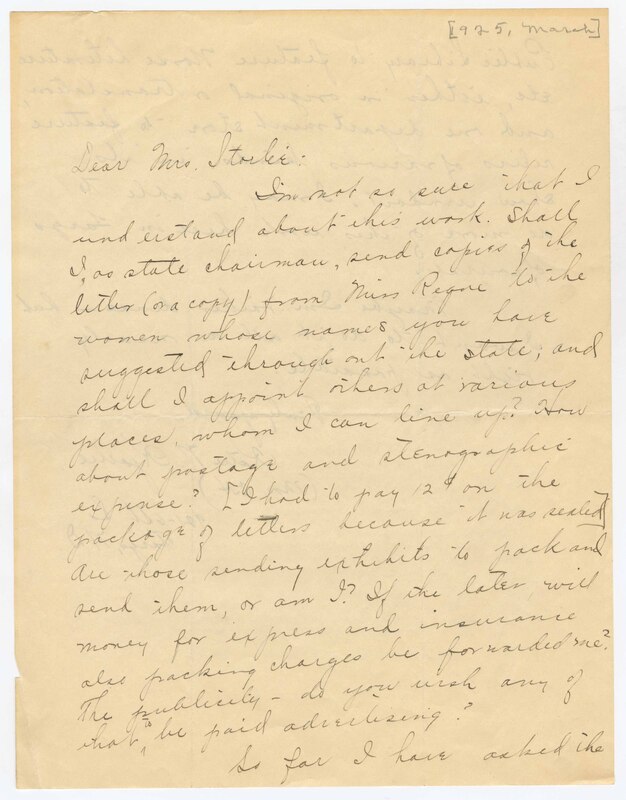 [1925, March]
Dear Mrs. Storlie:
I'm not so sure that I
understand about this work. Shall
I, as state chairman, send copies of the
letter (or a copy) from Miss Regne to the
women whose names you have
suggested through out the state; and
shall I appoint others at various
places, whom I can line up? How
about postage and stenographic
expense? [I had to pay 12¢ on the
package of letters because it was sealed]
Are those sending exhibits to pack and
send them, or am I? If the later, will
money for express and insurance
also packing charges be forwarded me?
The publicity – do you wish any of
that to be paid advertising?
So far I have asked the